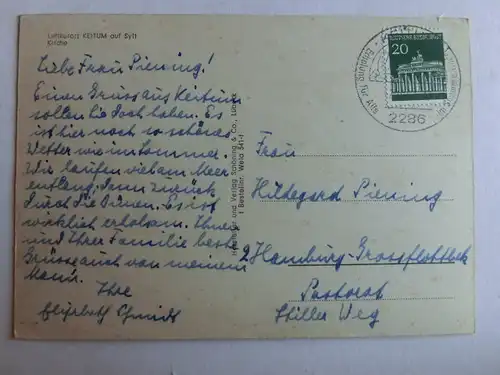 Luftkurort KEITUM auf Sylt
Kirche
Liebe Frau Piening!
Einen Gruss aus Keitum
sollen Sie doch haben. Es
ist hier noch so schönes
Wetter wie im Sommer.
Wir laufen viel am Meer
entlang, dann zurück
durch die Dünen. Es ist
wirklich erholsam. Ihnen
und Ihrer Familie beste
Grüsse auch von meinem
Mann. Ihre
Elisabeth Schmidt
Hersteller und Verlag Schöning & Co., Lübeck
Bestellnr. Weld 541-f
20
2286
Erholung für Alle
Frau
Hildegard Piening
2 Hamburg-Grossflottbek
Pastorat
Stiller Weg